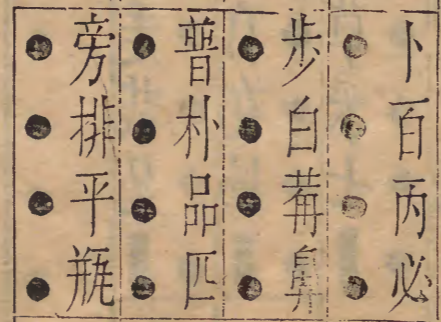 卜百丙必
步白萆鼻
普朴品匹
旁排平瓶